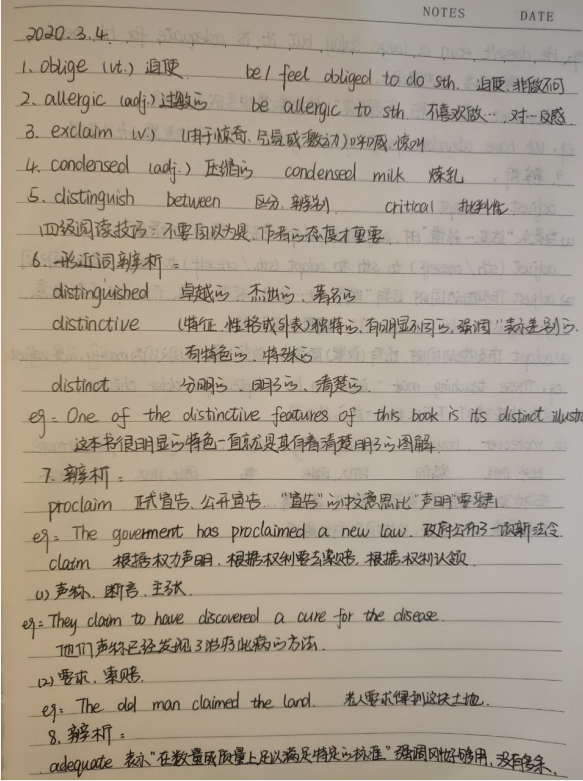 NOTES DATE
2020.3.4.
1. oblige (vt.) 迫使 be / feel obliged to do sth. 迫使, 非做不可
2. allergic (adj.) 过敏的 be allergic to sth. 不喜欢做…, 对…反感
3. exclaim (v.) (由于惊奇、气氛或激动) 呼喊, 惊叫
4. condensed (adj.) 压缩的 condensed milk 炼乳
5. distinguish between 区分, 辨别 critical 批判性
四级阅读技巧: 不要自以为是, 作者的态度才重要
6. 形近词辨析:
distinguished 卓越的、杰出的、著名的
distinctive (特征、性格或外表) 独特的, 有明显不同的, 强调"表示差别的、
有特色的、特殊的
distinct 分明的、明了的、清楚的
eg: One of the distinctive features of this book is its distinct illustra
这本书很明显的特色一直就是其有着清楚明了的图解.
7. 辨析:
proclaim 正式宣告、公开宣告. "宣告"的中文意思比"声明"要强
eg: The goverment has proclaimed a new law. 政府公布了一项新法令
claim 根据权力声明, 根据权利要去索赔, 根据权利认领
(1) 声称, 断言, 主张
eg: They claim to have discovered a cure for the disease.
他们声称已经发现了治疗此病的方法.
(2) 要求, 索赔.
eg: The old man claimed the land. 老人要求得到这块土地.
8. 辨析:
adequate 表示"在数量或质量上足以满足特定的标准" 强调刚好够用, 没有多余.